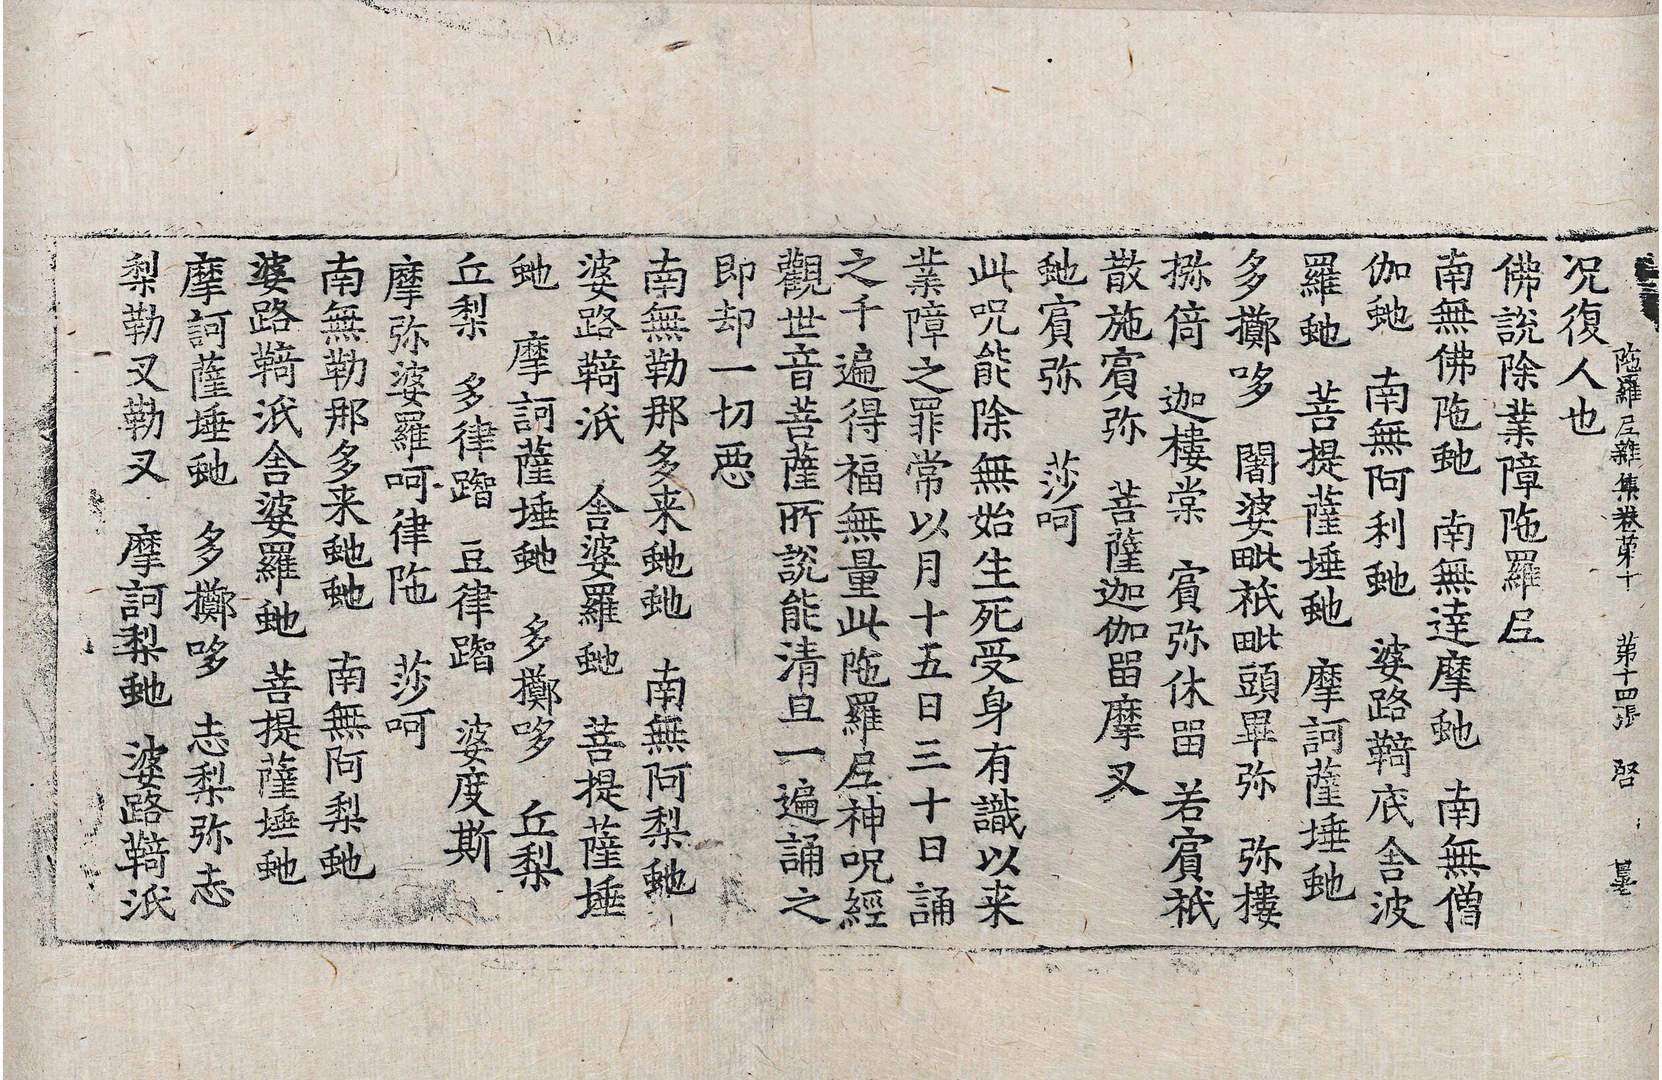 陁羅尼雜集卷第十 第十四張 啓
况復人也
佛說除業障陁羅尼
南無佛陁虵 南無達摩虵 南無僧
伽虵 南無阿利虵 婆路鞨底舍波
羅虵 菩提薩埵虵 摩訶薩埵虵
多擲哆 闍婆毗祇毗頭畢弥 弥摟
搎倚 迦樓棠 賓弥休畱若賓祇
散施賓弥 菩薩迦伽畱摩叉
虵賓弥 莎呵
此呪能除無始生死受身有識以来
業障之罪常以月十五日三十日誦
之千遍得福無量此陁羅尼神呪經
觀世音菩薩所說能清旦一遍誦之
即却一切惡
南無勒那多来虵虵 南無阿梨虵
婆路鞨泜 舍婆羅虵 菩提薩埵
虵 摩訶薩埵虵 多擲哆 丘梨
丘梨 多律䠶 豆律䠶 婆度斯
摩弥婆羅呵律陁 莎呵
南無勒那多来虵虵 南無阿梨虵
婆路鞨泜舍婆羅虵 菩提薩埵虵
摩訶薩埵虵 多擲哆 志梨弥志
梨勒叉勒叉 摩訶梨虵 婆路鞨泜